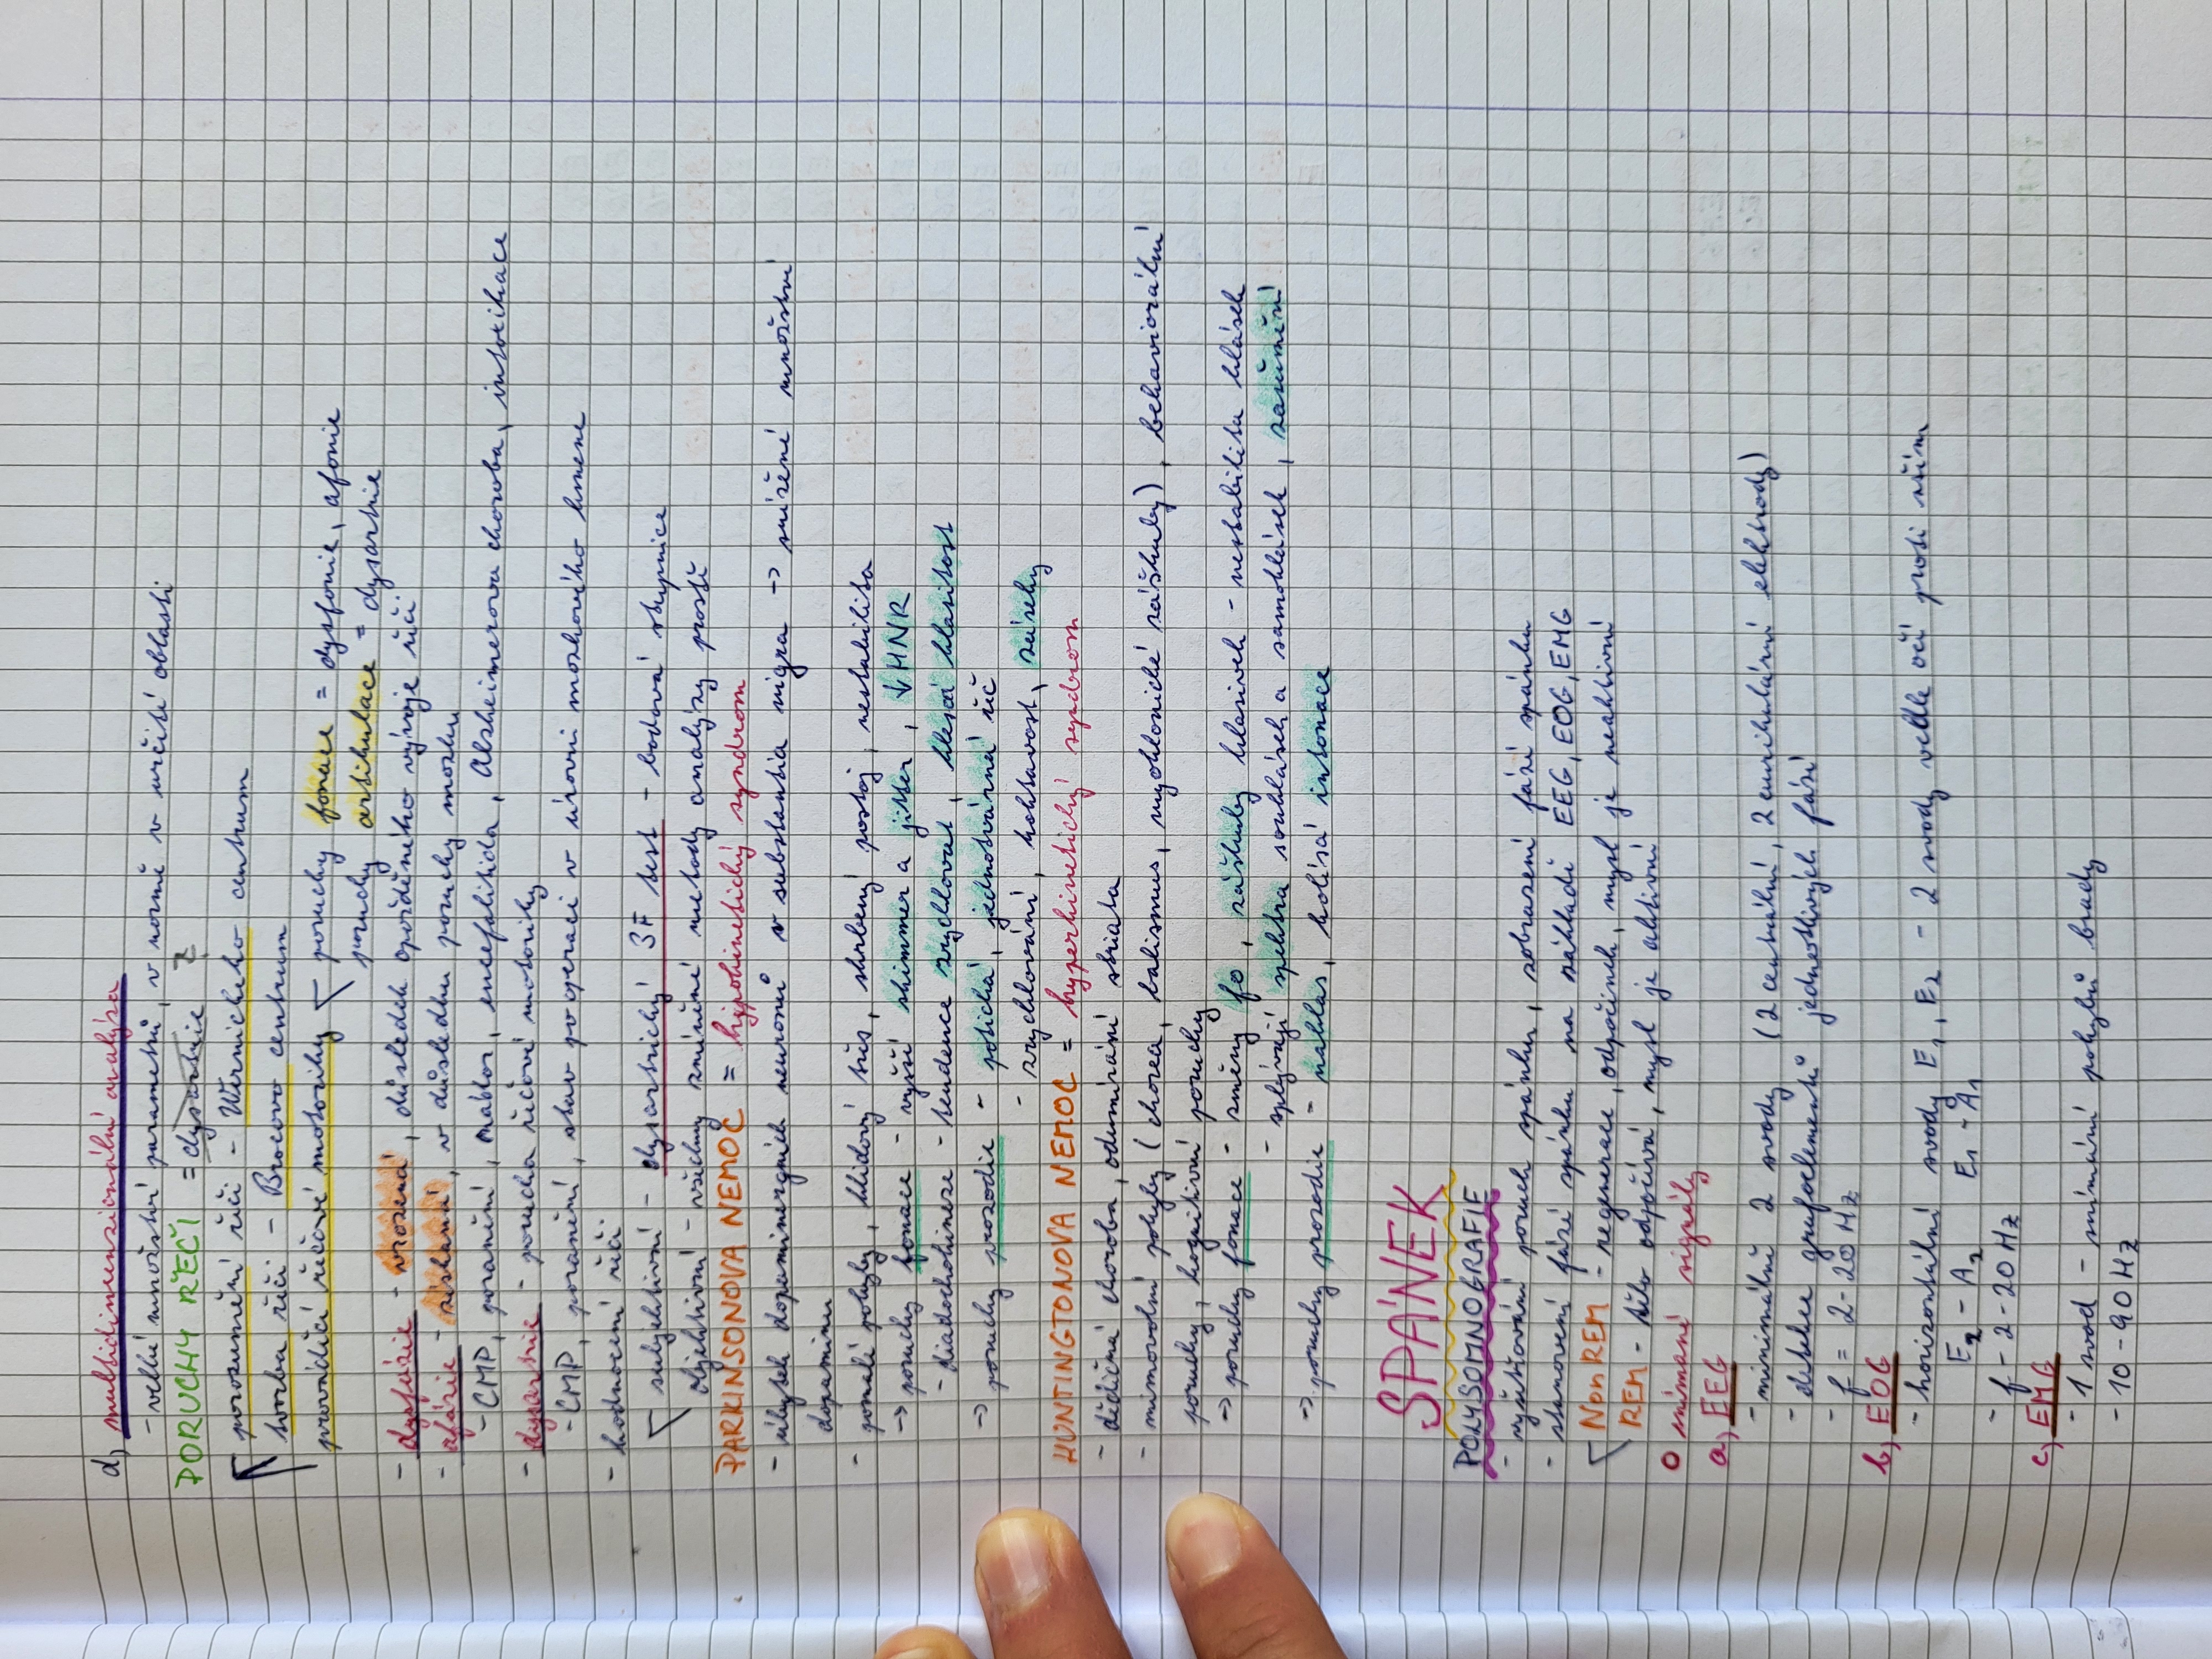 d) multidimenzionální analýza
- velké množství parametrů, v normě v určité oblasti
PORUCHY ŘEČI = dysartrie ?
porozumění řeči - Wernickeho centrum
tvorba řeči - Brocovo centrum
provádění řečové motoriky - poruchy fonace = dysfonie, afonie
poruchy artikulace = dysartrie
- dysfázie - vrozená, důsledek opožděného vývoje řeči
- afázie - získaná, v důsledku poruchy mozku
- CMP, poranění, nádor, encefalitida, Alzheimerova choroba, intoxikace
- dysartrie - porucha řečové motoriky
- CMP, poranění, stav po operaci v úrovni mozkového kmene
- hodnocení řeči
subjektivní - dysartrický 3F test - bodová stupnice
objektivní - všechny zmíněné metody analýzy prostě
PARKINSONOVA NEMOC = hypokinetický syndrom
- úbytek dopaminergních neuronů v substantia nigra -> snížené množství
dopaminu
- pomalé pohyby, klidový třes, shrbený postoj, nestabilita
-> poruchy fonace - vyšší shimmer a jitter, ↓HNR
- diadochokineze - tendence zrychlovat, klesá hlasitost
-> poruchy prozodie - potichá, jednotvárná řeč
- zrychlování, koktavost, zárazy
HUNTINGTONOVA NEMOC = hyperkinetický syndrom
- dědičná choroba, odumírání striata
- mimovolní pohyby (chorea, balismus, myoklonické záškuby), behaviorální
poruchy, kognitivní poruchy
-> poruchy fonace - změny f0, záškuby hlasivek - nestabilita hlásek
- splývají spektra souhlásek a samohlásek, zašumění
-> poruchy prozodie - nahlas, kolísá intonace
SPÁNEK
POLYSOMNOGRAFIE
- vyšetřování poruch spánku, zobrazení fází spánku
- stanovení fází spánku na základě EEG, EOG, EMG
NonREM - regenerace, odpočinek, mysl je neaktivní
REM - tělo odpočívá, mysl je aktivní
O snímané signály
a) EEG
- minimálně 2 svody (2 centrální, 2 aurikulární elektrody)
- detekce grafoelementů jednotlivých fází
- f = 2-20 Hz
b) EOG
- horizontální svody E1, E2 - 2 svody vedle očí proti uším
E2 - A2 E1 - A1
- f - 2-20 Hz
c) EMG
- 1 svod - snímání pohybů brady
- 10-90 Hz